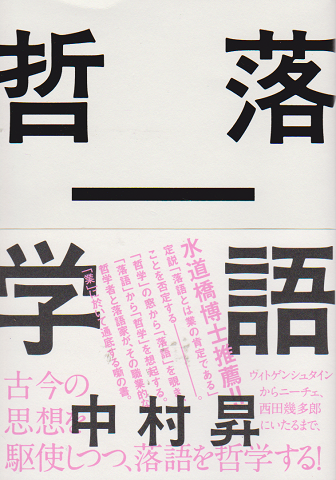 落語
―
哲学
水道橋博士推薦!!
定説「落語とは業の肯定である」。
ことを否定する
「哲学」の窓から「落語」を覗き
「落語」から「哲学」を想起する。
哲学者と落語家が、その職業的
「業」に於いて通底する噺の書。
ヴィトゲンシュタイン
からニーチェ、
西田幾多郎
にいたるまで、
古今の
思想を
駆使しつつ、落語を哲学する!
中村昇